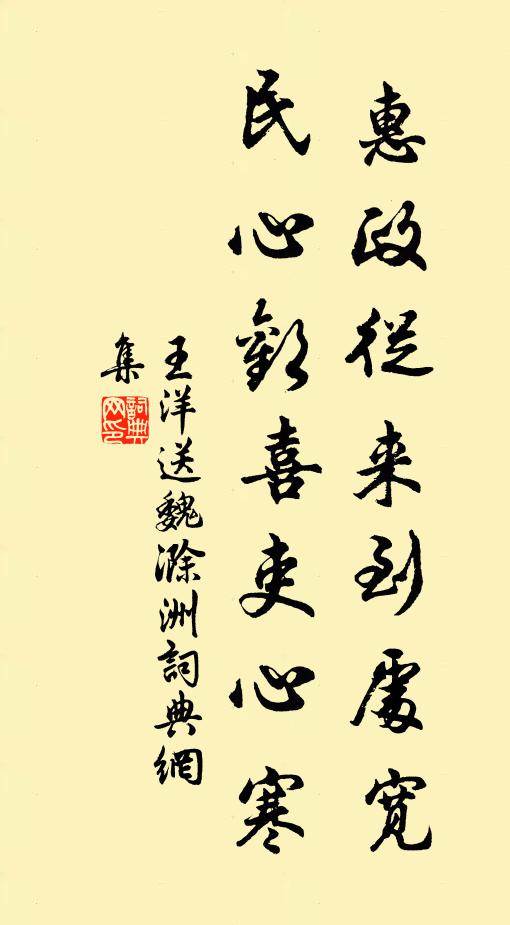 惠政從来到處寬
民心歡喜吏心寒
王洋送魏滁洲詞典網
集
詞典
网印